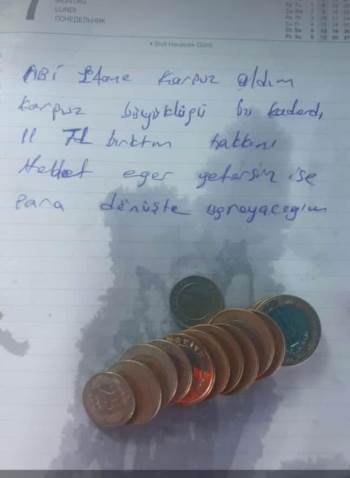 LUNEDI
ПОНЕДЕЛЬНИК
ABİ 1 tane karpuz aldım
karpuz büyüklüğü bu kadardı
11 TL bıraktım hakkını
Hellet eger yetersiz ise
Para dönüşte ugrayacağım